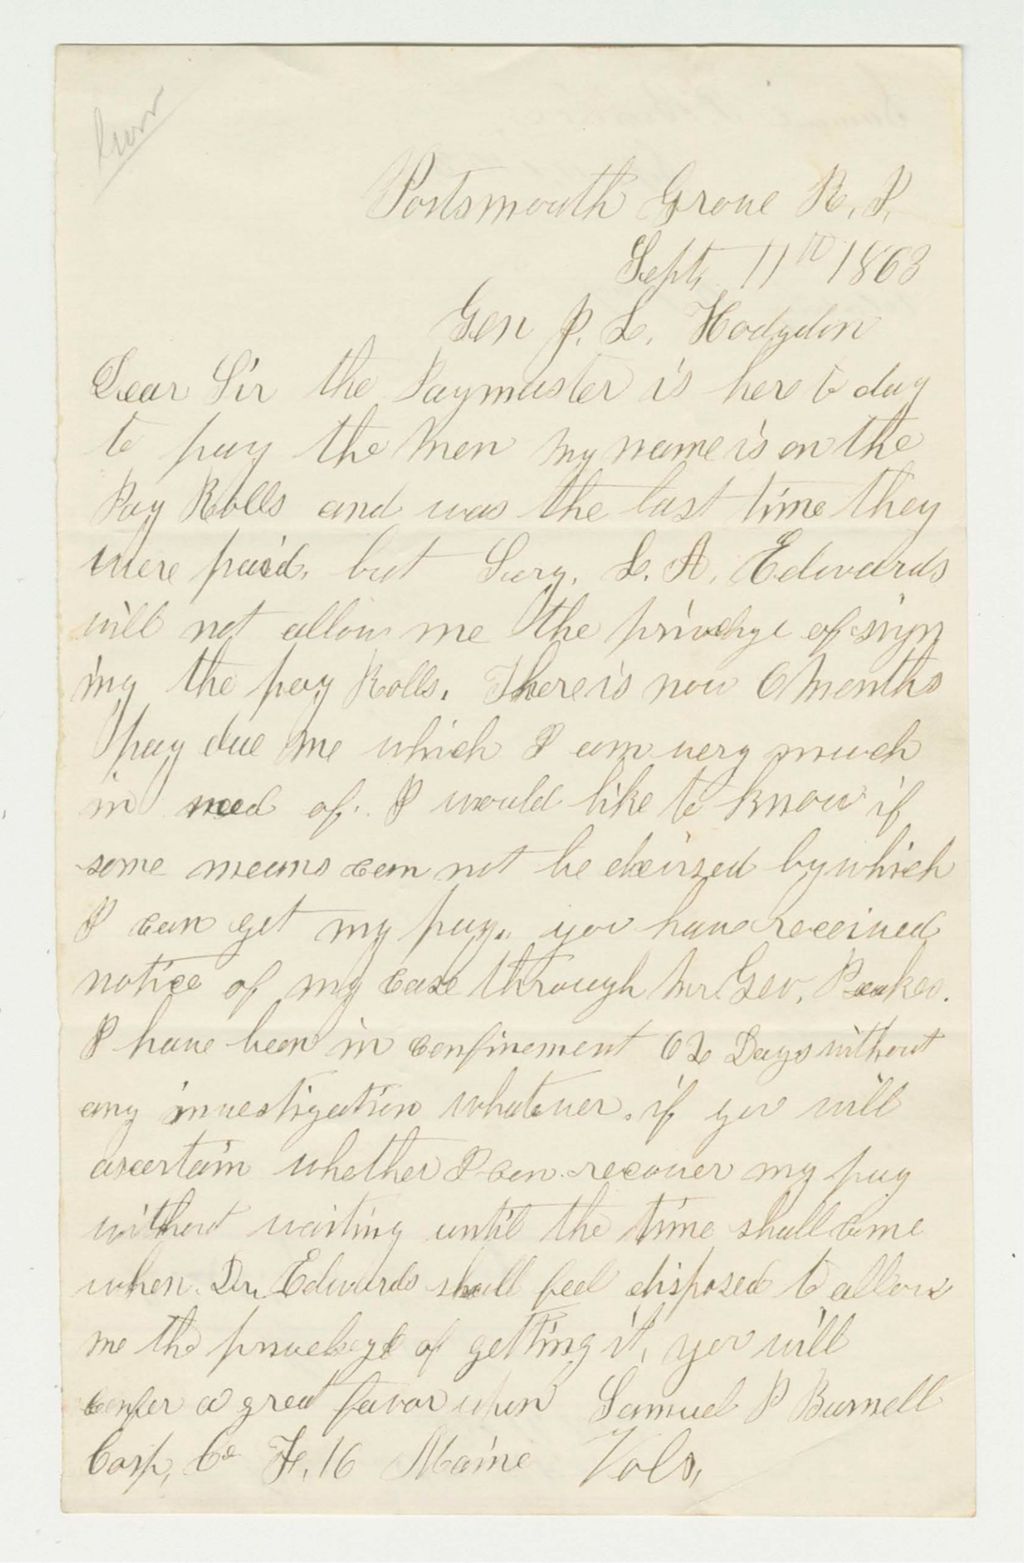 Portsmouth Grove R. I.
Sept, 11th 1863
Gen J. L. Hodgdon
Dear Sir the Paymaster is here to day
to pay the Men My name is on the
Pay Rolls and was the last time they
were paid, but Surg. L. A. Edwards
will not allow me the privelige of sign
ing the pay Rolls. There is now 6 Months
pay due me which I am very much
in need of. I would like to know if
some means can not be devised by which
I can get my pay. you have received
notice of my case through Mr. Geo. Peakes.
I have been in confinement 62 Days without
any investigation whatever. if you will
ascertain whether I can recover my pay
without waiting until the time shall come
when Dr. Edwards shall feel disposed to allow
me the privelege of getting it, you will
confer a great favor upon Samuel P Burnell
Corp, Co F, 16 Maine Vols,